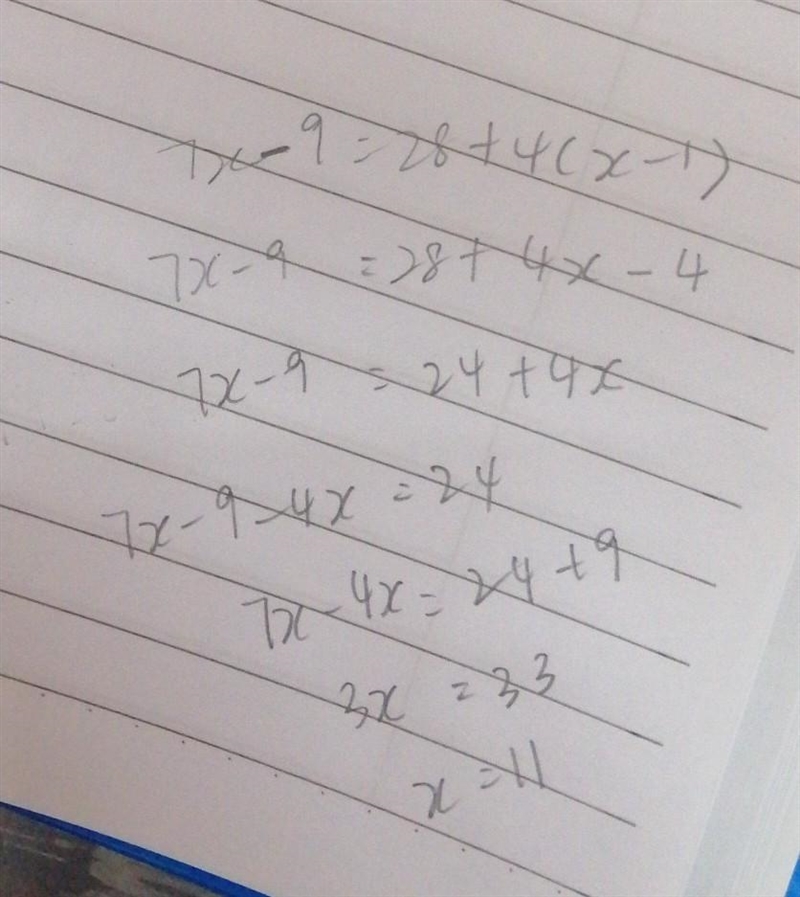 7x-9=28+4(x-1)
7x-9=28+4x-4
7x-9=24+4x
7x-9-4x=24
7x-4x=24+9
3x=33
x=11